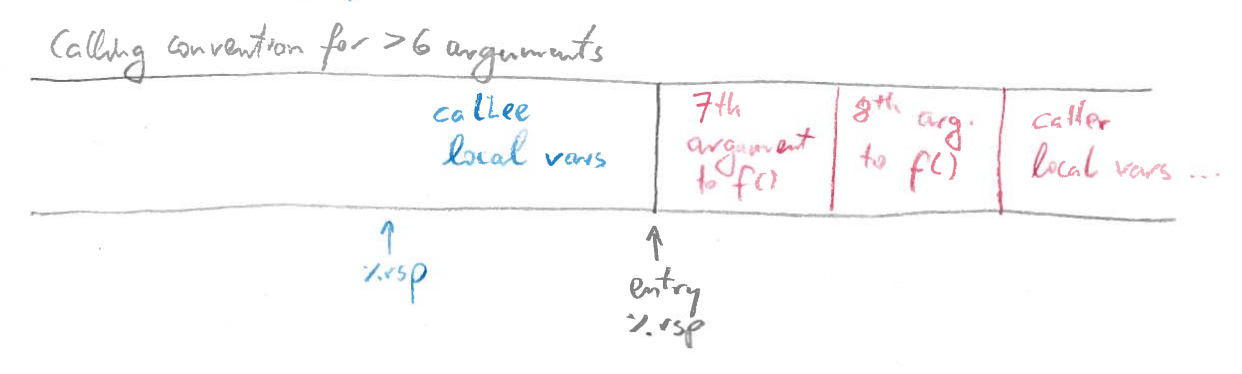 Calling convention for >6 arguments
callee
local vars
7th
argument
to f()
8th arg.
to f()
caller
local vars ...
%rsp
entry
%rsp